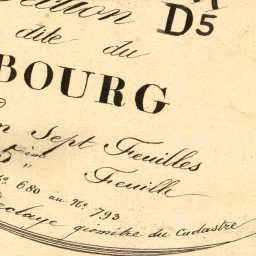 Section D5
dite du
BOURG
en Sept Feuilles
5 ème Feuille
N°. 680 au N°. 793
géomètre du Cadastre